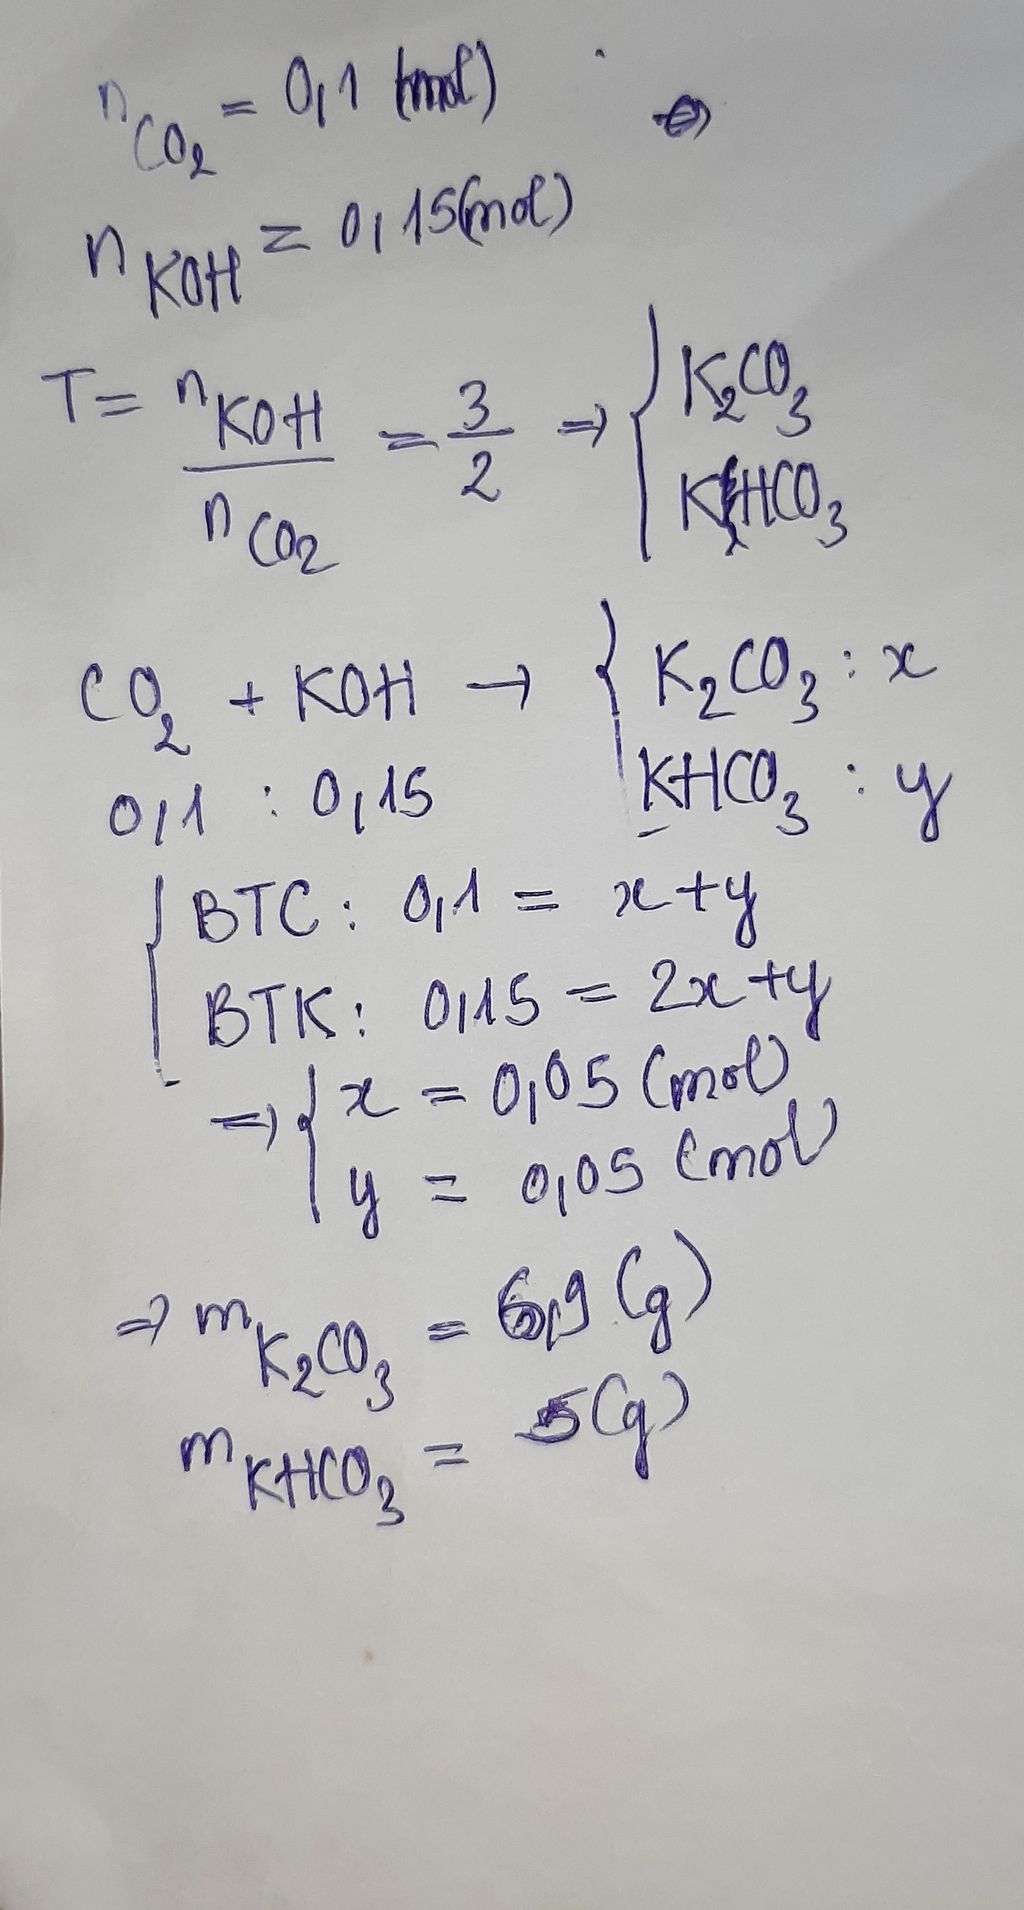 nCO₂ = 0,1 (mol)
nKOH = 0,15 (mol)
T = nKOH / nCO₂ = 3/2 => { K₂CO₃
KHCO₃
CO₂ + KOH → { K₂CO₃ : x
0,1 : 0,15 KHCO₃ : y
{ BTC : 0,1 = x + y
BTK : 0,15 = 2x + y
=> { x = 0,05 (mol)
y = 0,05 (mol)
=> mK₂CO₃ = 6,9 (g)
mKHCO₃ = 5 (g)